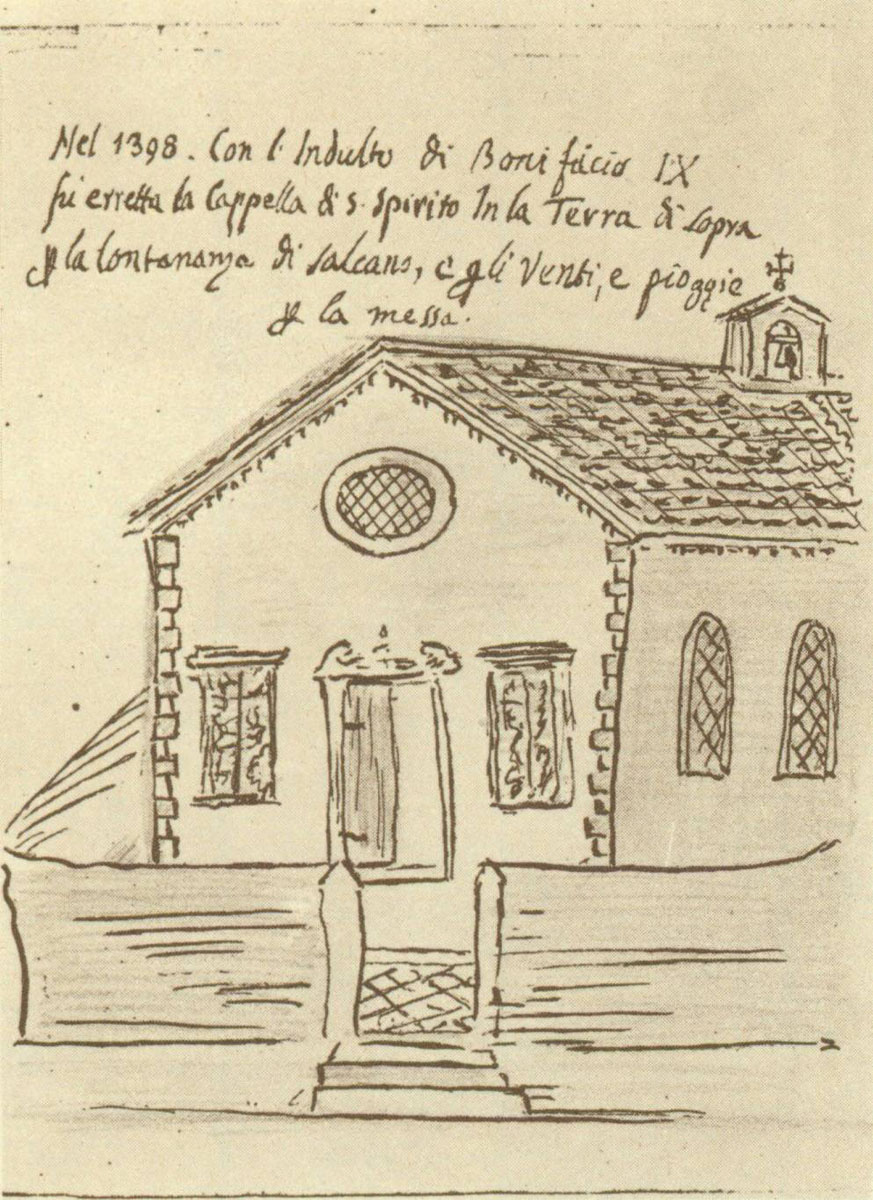 Nel 1398. Con l. Indulto di Bonifacio IX
fu erretta la Cappella di S. Spirito In la Terra di sopra
ꝑ la lontananza di Salcano, e ꝑ gli Venti, e pioggie
ꝑ la messa.